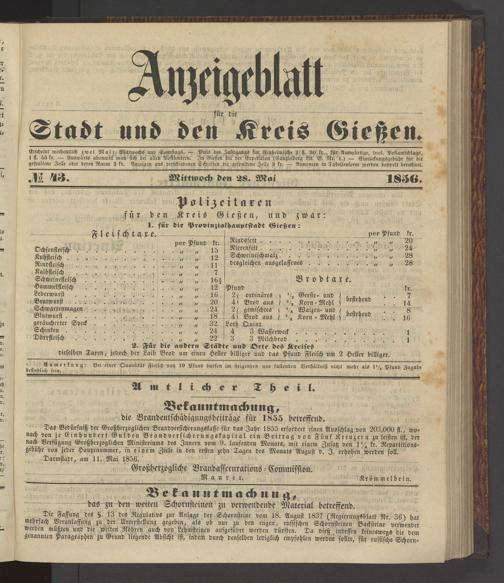 Anzeigeblatt
für die
Stadt und den Kreis Gießen.
Erscheint wöchentlich zwei Mal: Mittwochs und Samstags.
1 fl. 45 kr.
№ 43. Mittwoch den 28. Mai 1856.
Polizeitaxen
für den Kreis Gießen, und zwar:
1. für die Provinzialhauptstadt Gießen:
Fleischtaxe.
per Pfund kr.
Ochsenfleisch " " 15
Kuhfleisch " " 12
Rindfleisch " " 11
Kalbfleisch " " 7
Schweinefleisch " " 16½
Hammelfleisch " " 12
Leberwurst " " 16
Bratwurst " " 20
Schwartenmagen " " 24
Blutwurst " " 18
geräucherter Speck " " 32
Schinken " " 24
Dörrfleisch " " 22
per Pfund kr.
Rindsfett " " 20
Nierenfett " " 24
Schweineschmalz " " 28
dergleichen ausgelassenes " " 28
Brodtaxe.
Pfund kr.
2 ordinäres Gerste- und bestehend 7
4 Brod aus Korn-Mehl 14
2 gemischtes Waizen- und bestehend 8
4 Brod aus Korn-Mehl 16
Loth Quint.
4 3 Wasserweck 1
3 3 Milchbrod 1
2. Für die andern Städte und Orte des Kreises
dieselben Taxen, jedoch der Laib Brod um einen Heller billiger und das Pfund Fleisch um 2 Heller billiger.
Anmerkung: Bei einer Quantität Fleisch von 10 Pfund dürfen im Zugaben
befindlich sein.
Amtlicher Theil.
Bekanntmachung,
die Brandentschädigungsbeiträge für 1855 betreffend.
Das Bedürfniß der Großherzoglichen Brandversicherungskasse für das Jahr 1855 erfordert einen Ausschlag von 203,000 fl., wo-
nach von je Einhundert Gulden Brandversicherungskapital ein Beitrag von Fünf Kreuzern zu leisten ist, der
nach Verfügung Großherzoglichen Ministeriums des Innern vom 9. laufenden Monats, mit einem Zusatz von 1½ kr. Repartitions-
gebühr von jeder Hauptnummer, in einem Ziele in den ersten zehn Tagen des Monats August d. J. erhoben werden soll.
Darmstadt, am 11. Mai 1856.
Großherzogliche Brandassecurations-Commission.
Maurer. Krömmelbein.
Bekanntmachung,
das zu den weiten Schornsteinen zu verwendende Material betreffend.
Die Fassung des §. 13 des Regulativs zur Anlage der Schornsteine vom 18. August 1837 (Regierungsblatt Nr. 36) hat
mehrfach Veranlassung zu der Unterstellung gegeben, als ob nur zu den engen, russischen Schornsteinen Backsteine verwendet
werden müßten und die weiten Röhren auch von Lehmsteinen aufgeführt werden dürften. Da dieß indessen keineswegs die dem
genannten Paragraphen zu Grund liegende Absicht ist, indem durch denselben lediglich empfohlen werden sollte, für russische Schorn-